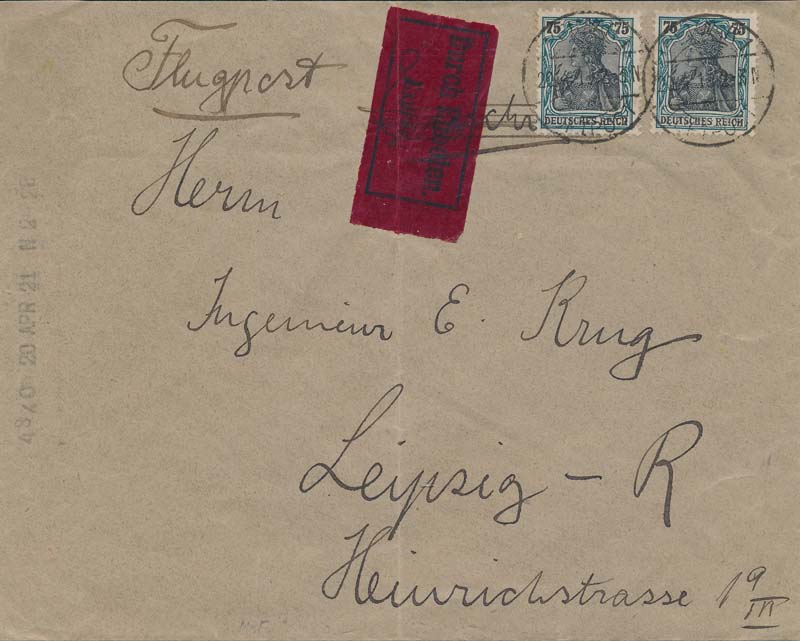 75 75 75 75
DEUTSCHES REICH DEUTSCHES REICH
Flugpost
Durch Eilboten.
Herrn
Ingenieur E. Krug
Leipzig – R
Heinrichstrasse 19 III
20 APR 21